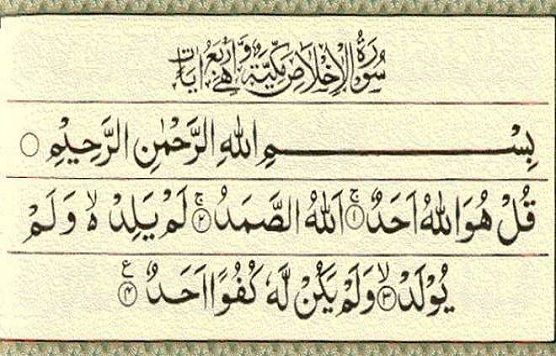 سُوْرَةُ الْاِخْلَاصِ مَكِّيَّةٌ وَّهِیَ اَرْبَعُ اٰیَاتٍ
بِسْمِ اللهِ الرَّحْمٰنِ الرَّحِيْمِ ○
قُلْ هُوَ اللهُ اَحَدٌ ۚ ﴿۱﴾ اَللهُ الصَّمَدُ ۚ ﴿۲﴾ لَمْ يَلِدْ ۙ۬ وَلَمْ
يُوْلَدْ ۙ ﴿۳﴾ وَلَمْ يَكُنْ لَّهٗ كُفُوًا اَحَدٌ ﴿۴﴾ ع